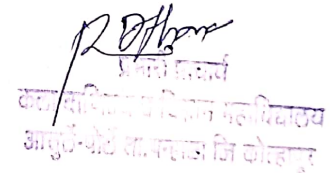 प्रभारी प्राचार्य
कला, वाणिज्य व विज्ञान महाविद्यालय
आसुर्ले-पोर्ले ता.पन्हाळा जि कोल्हापूर